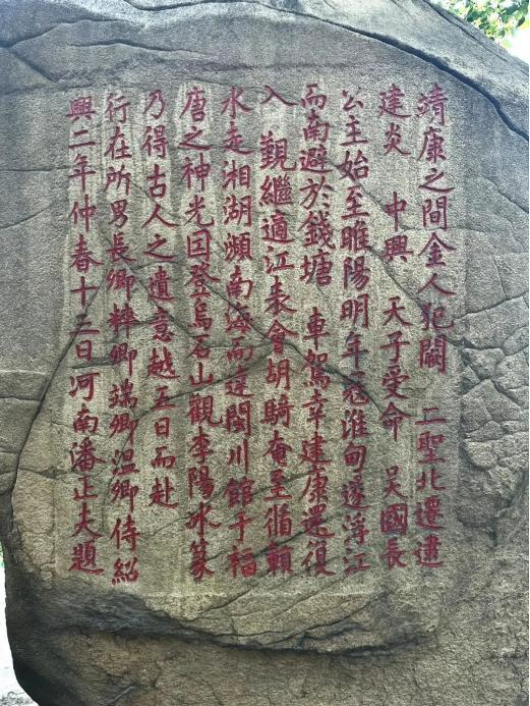 靖康之間金人犯闕 二聖北遷逮
建炎 中興 天子受命 吴國長
公主始至睢陽明年寇淮甸遂浮江
而南避於錢塘 車駕幸建康還復
入 覲繼適江表會胡騎奄至循贛
水走湘湖瀕南海而達閩川館于福
唐之神光因登烏石山觀李陽冰篆
乃得古人之遺意越五日而赴
行在所男長卿粹卿端卿温卿侍紹
興二年仲春十三日河南潘正夫題